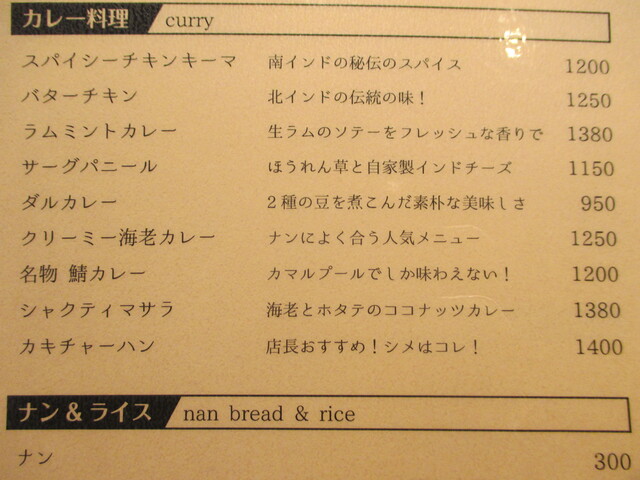 カレー料理 curry
スパイシーチキンキーマ 南インドの秘伝のスパイス 1200
バターチキン 北インドの伝統の味！ 1250
ラムミントカレー 生ラムのソテーをフレッシュな香りで 1380
サーグパニール ほうれん草と自家製インドチーズ 1150
ダルカレー 2種の豆を煮こんだ素朴な美味しさ 950
クリーミー海老カレー ナンによく合う人気メニュー 1250
名物 鯖カレー カマルプールでしか味わえない！ 1200
シャクティマサラ 海老とホタテのココナッツカレー 1380
カキチャーハン 店長おすすめ！シメはコレ！ 1400
ナン＆ライス nan bread & rice
ナン 300